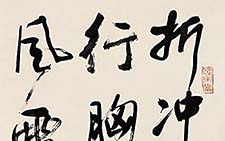 折冲
行胸
風